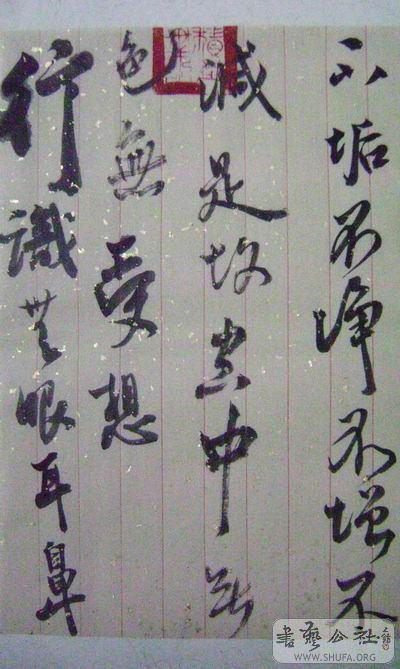 不垢不净不增不
减是故空中無
色無受想
行識無眼耳鼻
書藝公社
WWW.SHUFA.ORG